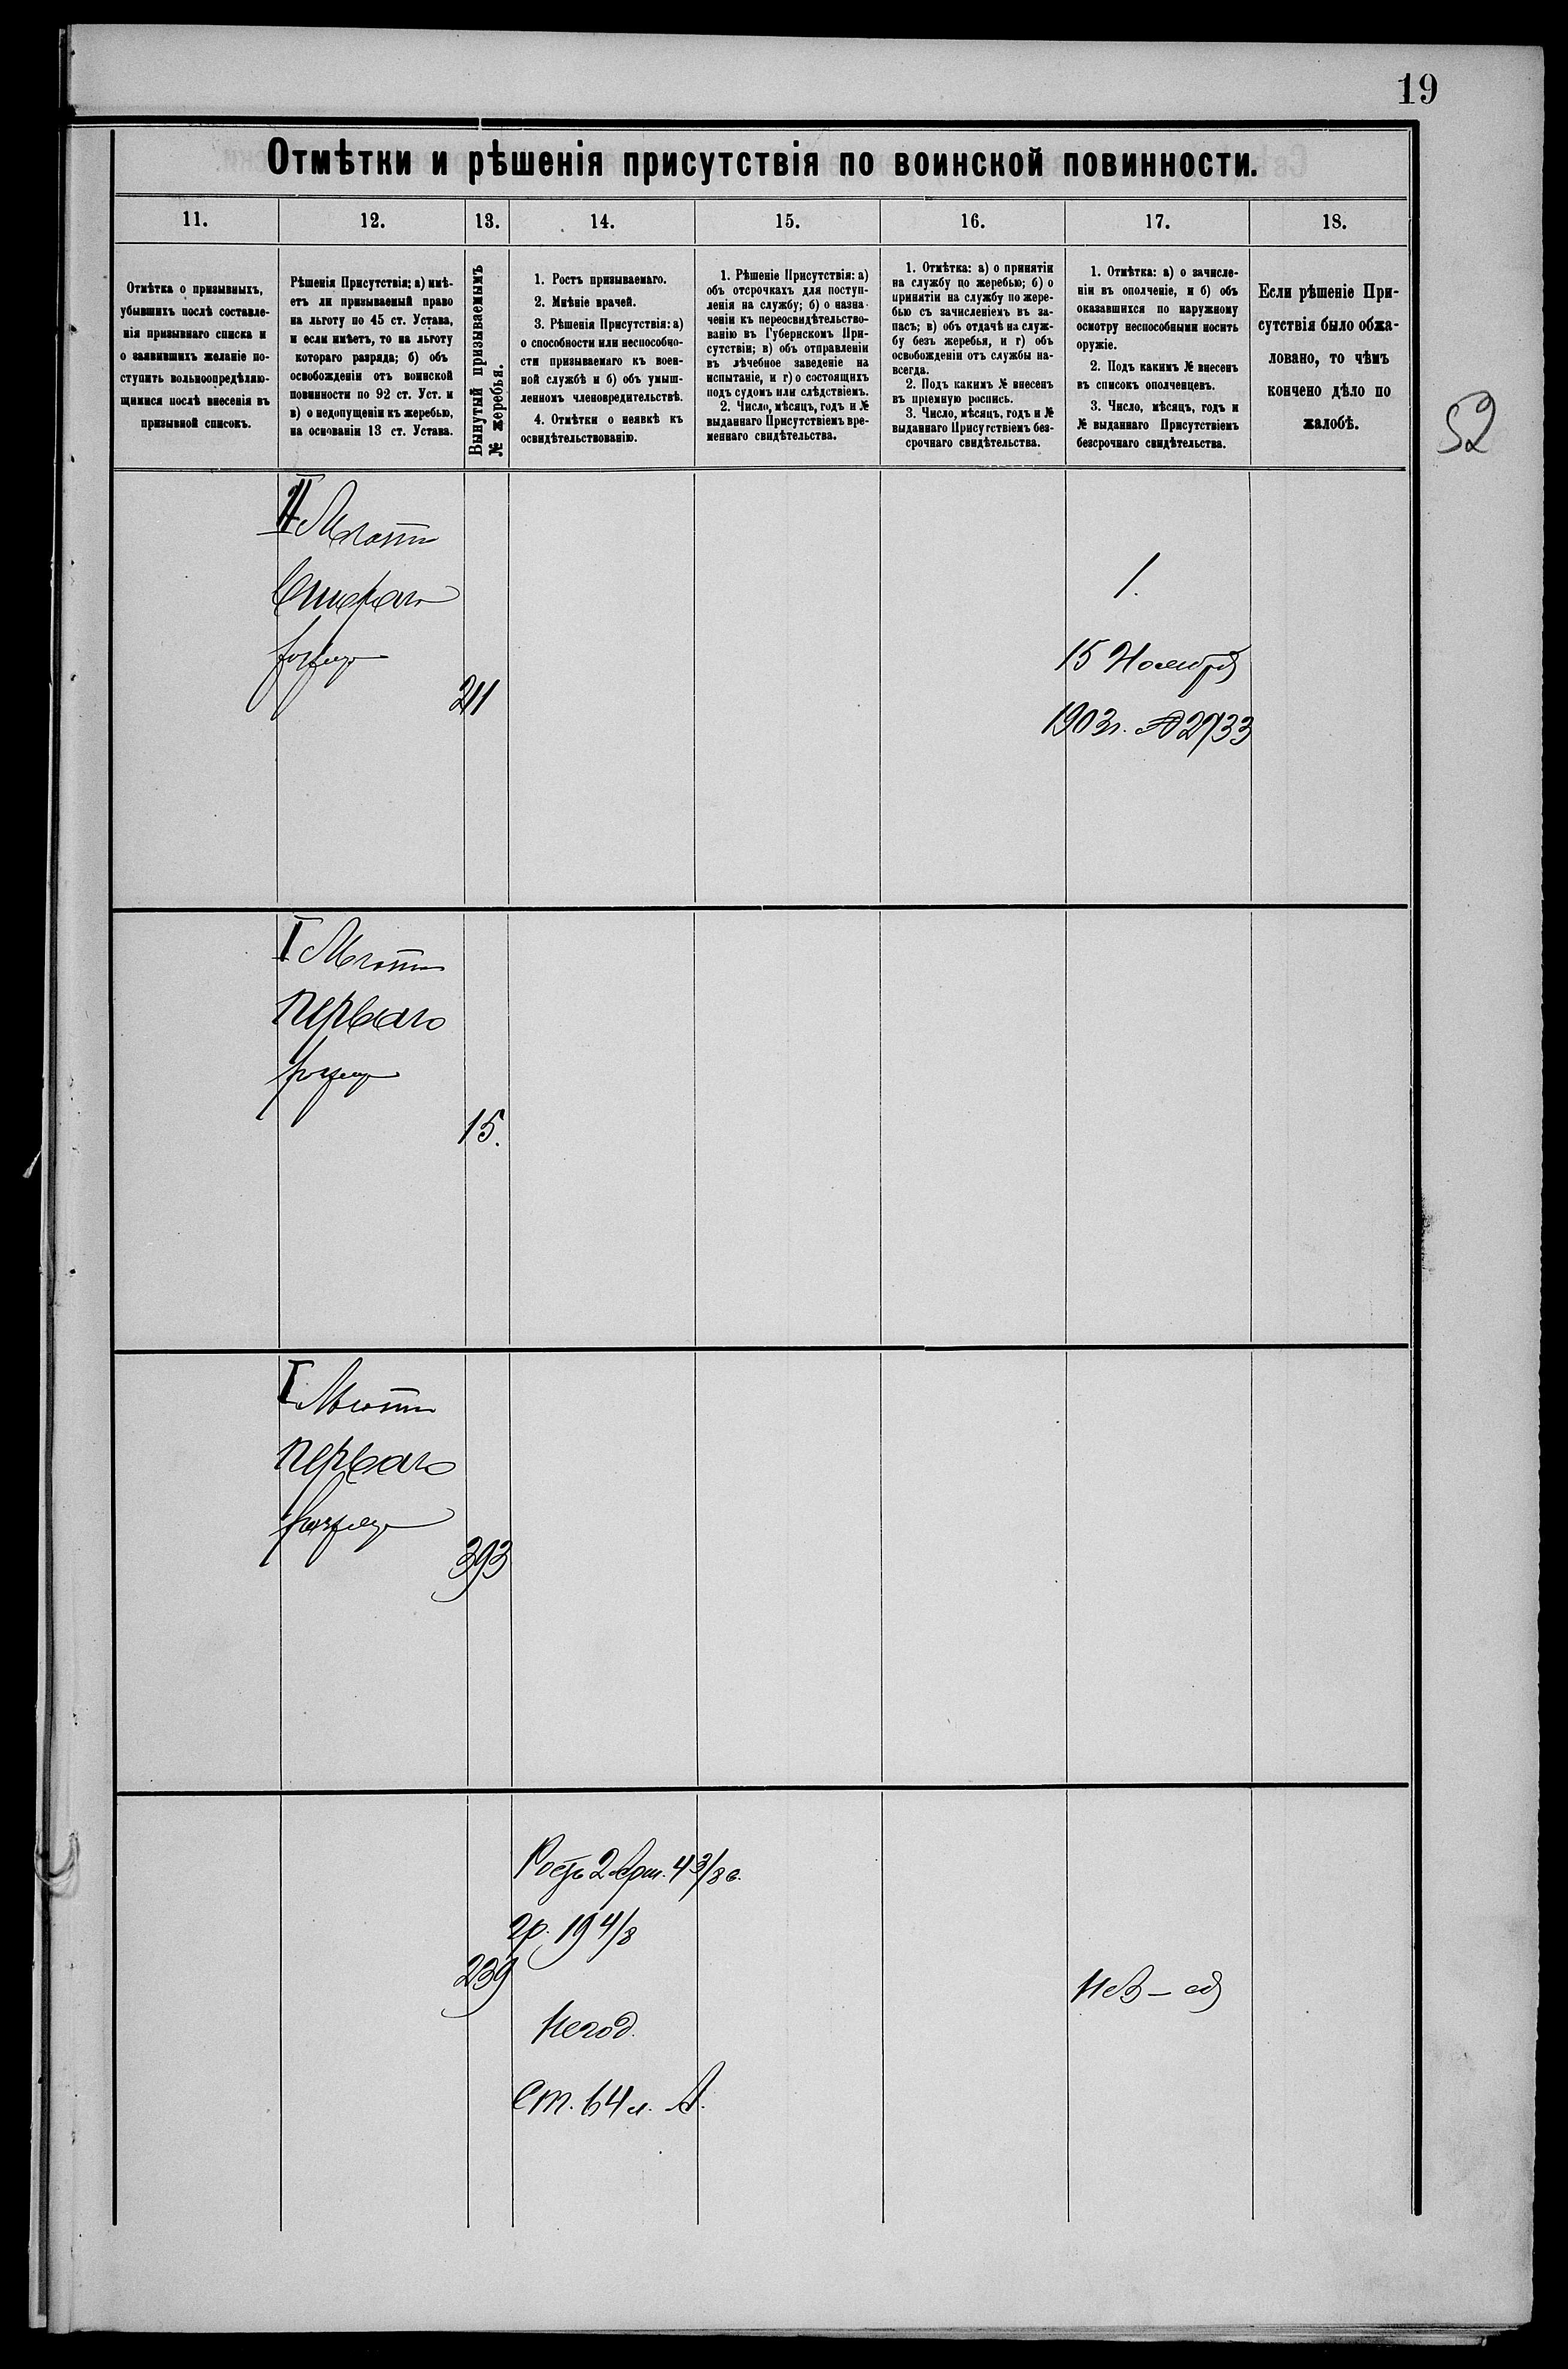 19
Отмѣтки и рѣшенія присутствія по воинской повинности.
11.
12.
13.
14.
15.
16.
17.
18.
Отмѣтка о призывныхъ,
убывшихъ послѣ составле-
нія призывнаго списка и
о заявившихъ желаніе по-
ступить вольноопредѣляю-
щимися послѣ внесенія въ
призывной списокъ.
Рѣшенія Присутствія: а) имѣ-
етъ ли призываемый право
на льготу по 45 ст. Устава,
и если имѣетъ, то на льготу
котораго разряда; б) объ
освобожденіи отъ воинской
повинности по 92 ст. Уст. и
в) о недопущеніи къ жеребью,
на основаніи 13 ст. Устава.
Вынутый призываемымъ
№ жеребья.
1. Ростъ призываемаго.
2. Мнѣніе врачей.
3. Рѣшенія Присутствія: а)
о способности или неспособно-
сти призываемаго къ воен-
ной службѣ и б) объ умыш-
ленномъ членовредительствѣ.
4. Отмѣтки о неявкѣ къ
освидѣтельствованію.
1. Рѣшеніе Присутствія: а)
объ отсрочкахъ для поступ-
ленія на службу; б) о назна-
ченіи къ переосвидѣтельство-
ванію въ Губернскомъ При-
сутствіи; в) объ отправленіи
въ лѣчебное заведеніе на
испытаніе, и г) о состоящихъ
подъ судомъ или слѣдствіемъ.
2. Число, мѣсяцъ, годъ и №
выданнаго Присутствіемъ вре-
меннаго свидѣтельства.
1. Отмѣтка: а) о принятіи
на службу по жеребью; б) о
принятіи на службу по жере-
бью съ зачисленіемъ въ за-
пасъ; в) объ отдачѣ на служ-
бу безъ жеребья, и г) объ
освобожденіи отъ службы на-
всегда.
2. Подъ какимъ № внесенъ
въ пріемную роспись.
3. Число, мѣсяцъ, годъ и №
выданнаго Присутствіемъ без-
срочнаго свидѣтельства.
1. Отмѣтка: а) о зачисле-
ніи въ ополченіе, и б) объ
оказавшихся по наружному
осмотру неспособными носить
оружіе.
2. Подъ какимъ № внесенъ
въ списокъ ополченцевъ.
3. Число, мѣсяцъ, годъ и
№ выданнаго Присутствіемъ
безсрочнаго свидѣтельства.
Если рѣшеніе При-
сутствія было обжа-
ловано, то чѣмъ
кончено дѣло по
жалобѣ.
52
II Льготы
второго
разряда
211
1.
15 Ноября
1903 г. № 2733
I Льготы
перваго
разряда
15.
I Льготы
перваго
разряда
393
Ростъ 2 арш. 4 3/8 в.
гр. 19 4/8
239
Негод.
Ст. 64 л. А.